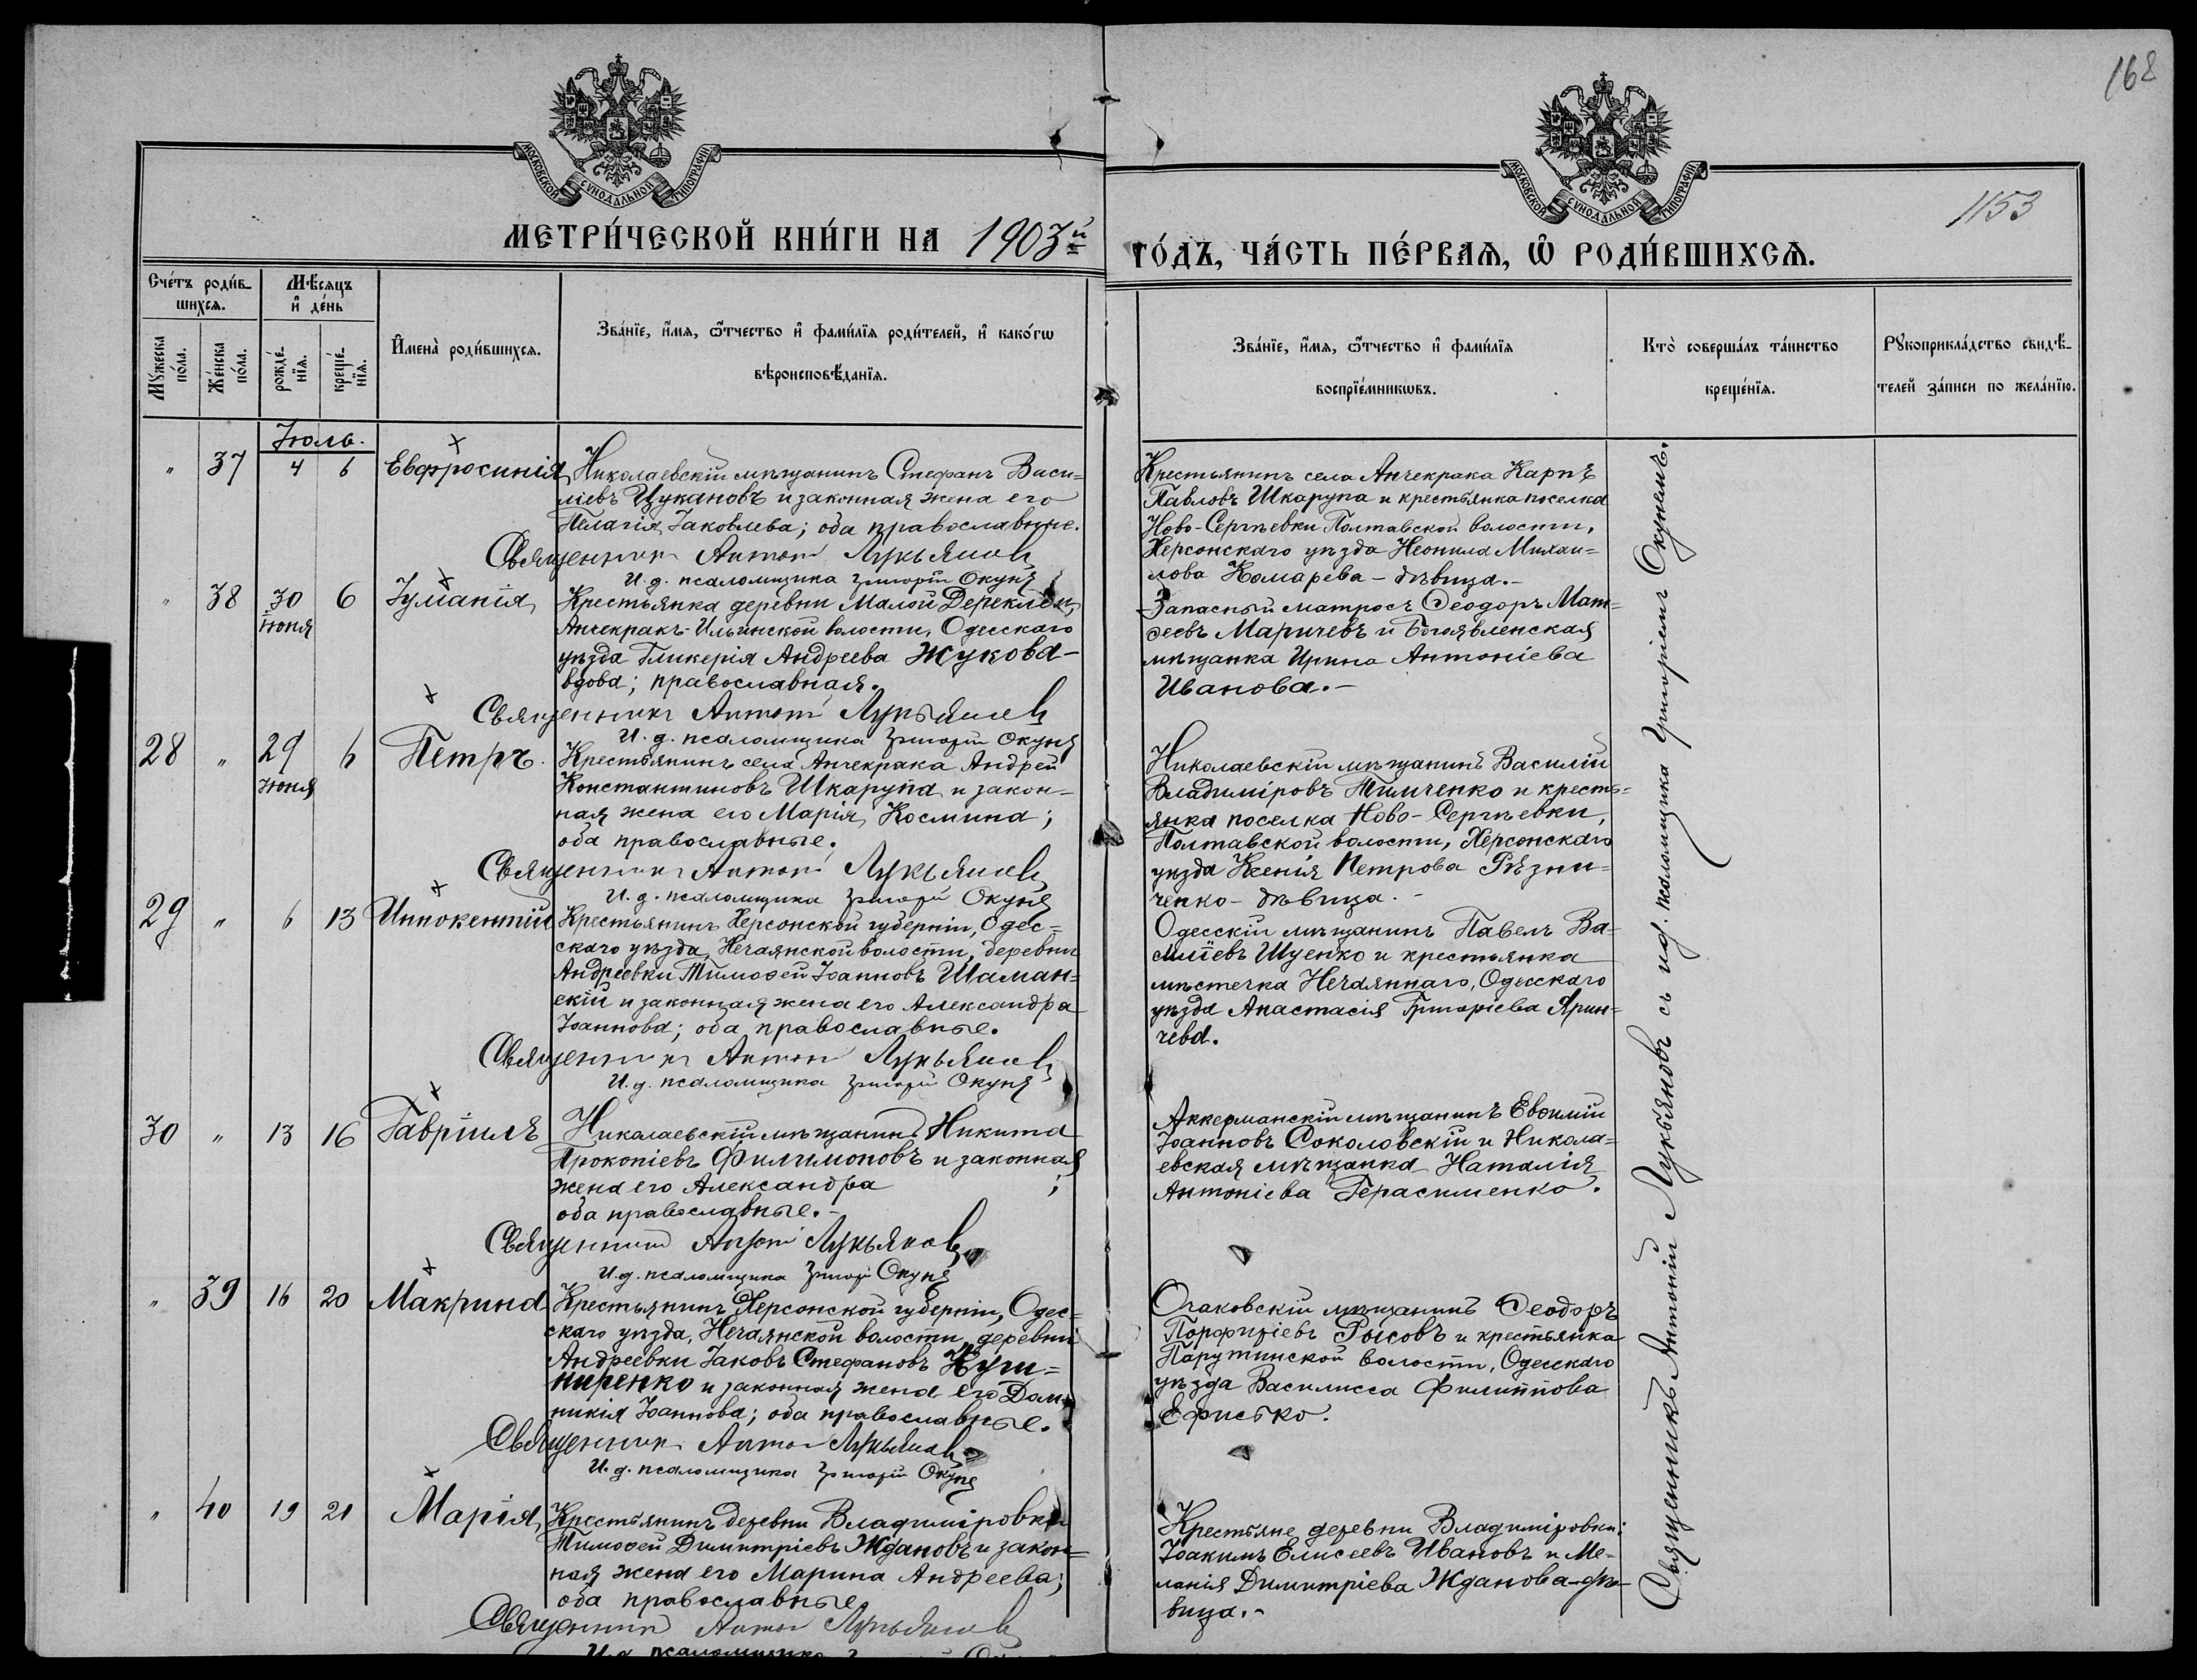 168
1153
МОСКОВСКОЙ СѴНОДАЛЬНОЙ ТИПОГРАФІИ
МОСКОВСКОЙ СѴНОДАЛЬНОЙ ТИПОГРАФІИ
МЕТРИ́ЧЕСКОЙ КНИ́ГИ НА 1903й
ГО́ДЪ, ЧА́СТЬ ПЕ́РВАѦ, Ѡ҆ РОДИ́ВШИХСѦ.
Сче́тъ роди́в-
шихсѧ.
Мѣ́сяцъ
и҆ де́нь
Мꙋ́жеска по́ла.
Же́нска по́ла.
рожде́-
нїѧ.
креще́-
нїѧ.
И҆мена̀ роди́вшихсѧ.
Зва́нїе, и҆́мѧ, ѻ҆́тчество и҆ фами́лїѧ роди́телей, и҆ како́гѡ
вѣроисповѣ́данїѧ.
Зва́нїе, и҆́мѧ, ѻ҆́тчество и҆ фами́лїѧ
воспрїе́мникѡвъ.
Кто̀ соверша́лъ та́инство
креще́нїѧ.
Рꙋкоприкла́дство свидѣ́-
телей за́писи по жела́нїю.
Іюль.
" 37 4 6 Евфросинія
Николаевскій мѣщанинъ Стефанъ Васи=
ліевъ Цукановъ и законная жена его
Пелагія Іаковлева; оба православные.
Священникъ Антоній Лукьяновъ
И. д. псаломщика Григорій Окунь
Крестьянинъ села Анчекрака Карпъ
Павловъ Шкарупа и крестьянка поселка
Ново-Сергѣевки Полтавской волости,
Херсонскаго уѣзда Неонила Михаи=
лова Комарева - дѣвица.-
" 38 30 іюня 6 Іуліанія
Крестьянка деревни Малой Дереклеи,
Анчекракъ-Ильинской волости, Одесскаго
уѣзда Гликерія Андреева Жукова-
вдова; православная.
Священникъ Антоній Лукьяновъ
И. д. псаломщика Григорій Окунь
Запасный матросъ Ѳеодоръ Мат=
ѳеевъ Маричевъ и Богоявленская
мѣщанка Ирина Антоніева
Иванова.-
28 " 29 іюня 6 Петръ.
Крестьянинъ села Анчекрака Андрей
Константиновъ Шкарупа и закон=
ная жена его Марія Космина;
оба православные.
Священникъ Антоній Лукьяновъ
И. д. псаломщика Григорій Окунь
Николаевскій мѣщанинъ Василій
Владиміровъ Тимченко и кресть=
янка поселка Ново-Сергѣевки,
Полтавской волости, Херсонскаго
уѣзда Ксенія Петрова Рѣзни=
ченко - дѣвица.-
29 " 6 13 Иннокентій
Крестьянинъ Херсонской губерніи, Одес=
скаго уѣзда, Нечаянской волости, деревни
Андреевки Тимоѳей Іоанновъ Шаман=
скій и законная жена его Александра
Іоаннова; оба православные.
Священникъ Антоній Лукьяновъ
И. д. псаломщика Григорій Окунь
Одесскій мѣщанинъ Павелъ Ва=
силіевъ Шуенко и крестьянка
мѣстечка Нечаяннаго, Одесскаго
уѣзда Анастасія Григоріева Ярин=
чева.
30 " 13 16 Гавріилъ
Николаевскій мѣщанинъ Никита
Прокопіевъ Филимоновъ и законная
жена его Александра ;
оба православные.-
Священникъ Антоній Лукьяновъ
И. д. псаломщика Григорій Окунь
Аккерманскій мѣщанинъ Евѳимій
Іоанновъ Соколовскій и Никола=
евская мѣщанка Наталія
Антоніева Герасименко.
" 39 16 20 Макрина
Крестьянинъ Херсонской губерніи, Одес=
скаго уѣзда, Нечаянской волости, деревни
Андреевки Іаковъ Стефановъ Куш=
ниренко и законная жена его Дом=
никія Іоаннова; оба православные.
Священникъ Антоній Лукьяновъ
И. д. псаломщика Григорій Окунь
Очаковскій мѣщанинъ Ѳеодоръ
Порфиріевъ Рысовъ и крестьянка
Парутинской волости, Одесскаго
уѣзда Василисса Филиппова
Ефисько.
" 40 19 21 Марія
Крестьянинъ деревни Владиміровки
Тимоѳей Димитріевъ Ждановъ и закон=
ная жена его Марина Андреева;
оба православные
Священникъ Антоній Лукьяновъ
И. д. псаломщика
Крестьяне деревни Владиміровки:
Іоакимъ Елисеевъ Ивановъ и Ме=
ланія Димитріева Жданова-дѣ-
вица.-
Священникъ Антоній Лукьяновъ съ и.д. псаломщика Григоріемъ Окунемъ.